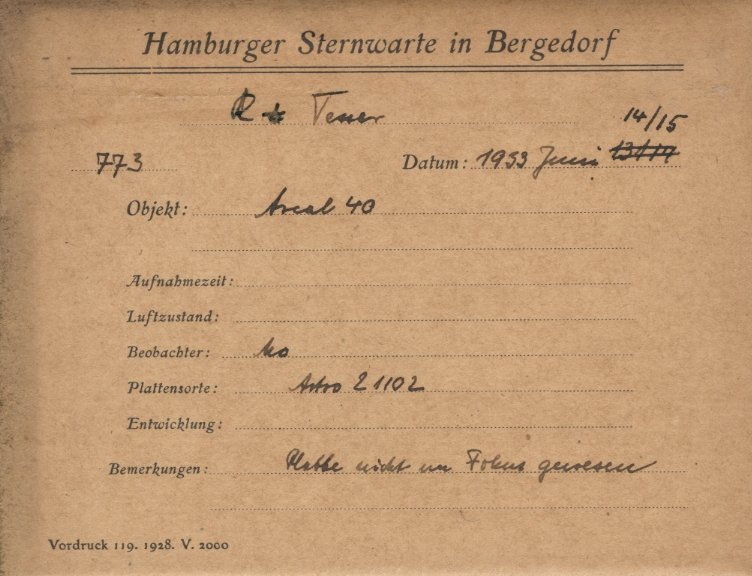 Hamburger Sternwarte in Bergedorf
Tesser
14/15
773 Datum: 1933 Juni 13/14
Objekt: Areal 40
Aufnahmezeit:
Luftzustand:
Beobachter:
Plattensorte: Astro 21102
Entwicklung:
Bemerkungen: Platte nicht im Fokus gewesen
Vordruck 119. 1928. V. 2000